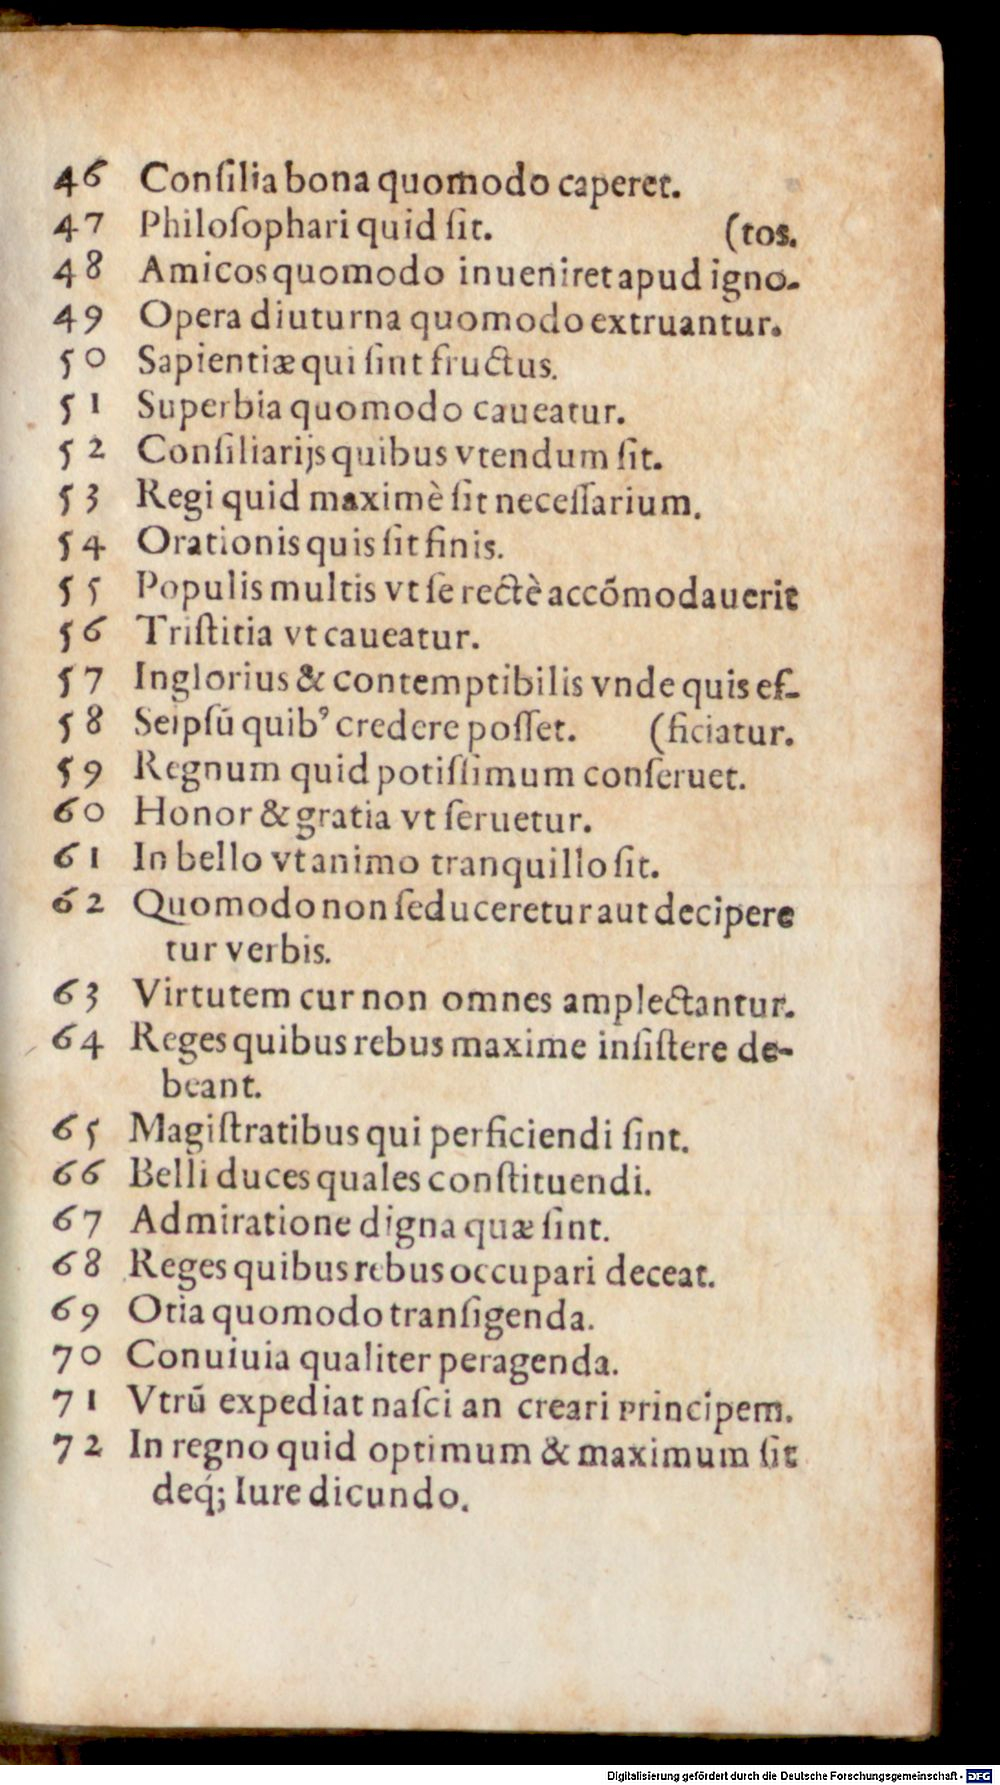 46 Conſilia bona quomodo caperet.
47 Philoſophari quid ſit. (tos.
48 Amicos quomodo inueniret apud igno-
49 Opera diuturna quomodo extruantur.
50 Sapientiæ qui ſint fructus.
51 Superbia quomodo caueatur.
52 Conſiliarijs quibus vtendum ſit.
53 Regi quid maximè ſit neceſſarium.
54 Orationis quis ſit finis.
55 Populis multis vt ſe rectè accõmodauerit
56 Triſtitia vt caueatur.
57 Inglorius & contemptibilis vnde quis ef-
58 Seipſũ quibꝰ credere poſſet. (ficiatur.
59 Regnum quid potiſſimum conſeruet.
60 Honor & gratia vt ſeruetur.
61 In bello vt animo tranquillo ſit.
62 Quomodo non ſeduceretur aut decipere
tur verbis.
63 Virtutem cur non omnes amplectantur.
64 Reges quibus rebus maxime inſiſtere de-
beant.
65 Magiſtratibus qui perficiendi ſint.
66 Belli duces quales conſtituendi.
67 Admiratione digna quæ ſint.
68 Reges quibus rebus occupari deceat.
69 Otia quomodo tranſigenda.
70 Conuiuia qualiter peragenda.
71 Vtrũ expediat naſci an creari principem.
72 In regno quid optimum & maximum ſit
deq́; Iure dicundo.
Digitalisierung gefördert durch die Deutsche Forschungsgemeinschaft - DFG